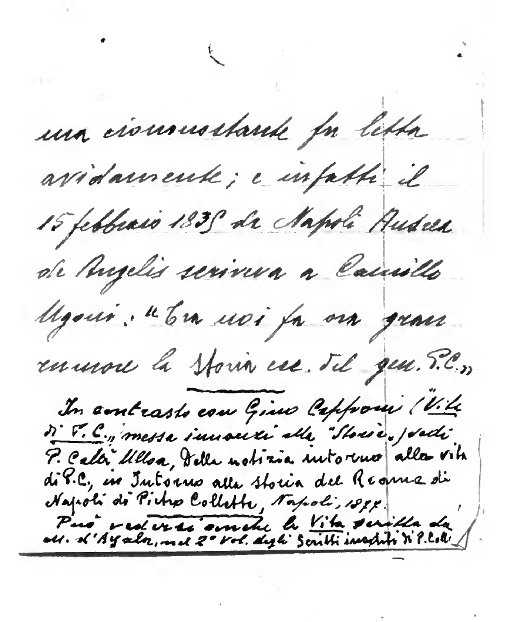 ma ciononostante fu letta
avidamente; e infatti il
15 febbraio 1835 da Napoli Andrea
de Angelis scriveva a Camillo
Ugoni: "Tra noi fa ora gran
rumore la Storia ec. del gen. P.C.„
In contrasto con Gino Capponi ("Vita
di P.C.„ messa innanzi alla "Storia„) vedi
P. Calà Ulloa, Della notizia intorno alla vita
di P.C., in Intorno alla storia del Reame di
Napoli di Pietro Colletta, Napoli, 1877.
Può vedersi anche la Vita scritta da
M. d'Ayala, nel 2° vol. degli Scritti inediti di P. Coll